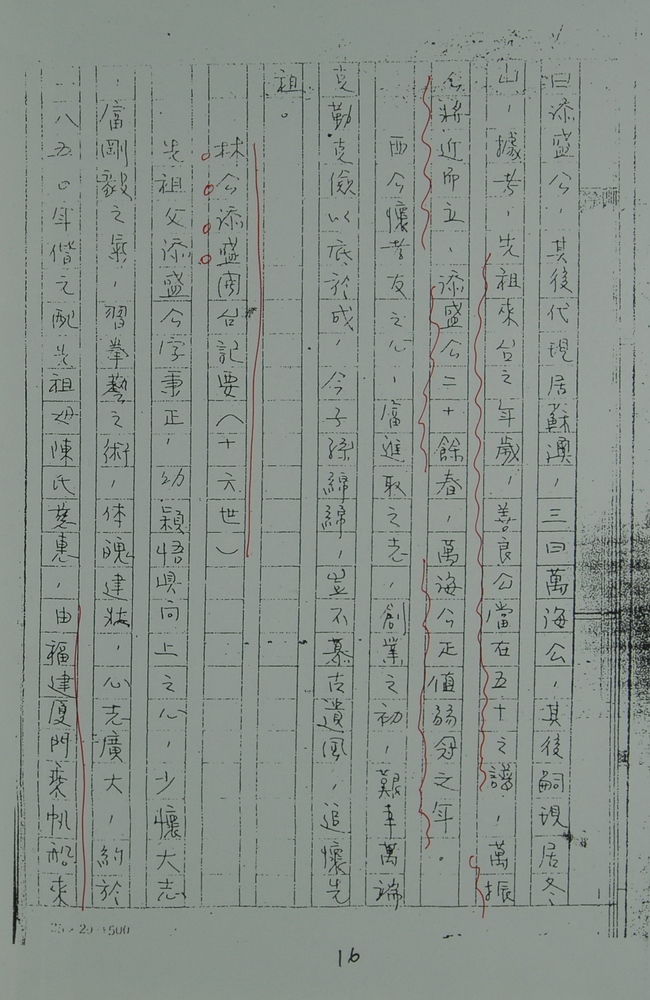 曰添盛公，其後代現居蘇澳，三曰萬海公，其後嗣現居冬
山，據考，先祖來台之年歲，善良公當在五十之譜，萬振
公將近而立，添盛公二十餘春，萬海公正值弱冠之年。
而今懷昔友之心，富進取之志，創業之初，艱辛萬端
克勤克儉以底於成，今子孫綿綿，豈不慕古遺風，追懷先
祖。
林公添盛開台記要（十六世）
先祖父添盛公字秉正，幼穎悟具向上之心，少懷大志
，富剛毅之氣，習拳藝之術，体魄建壯，心志廣大，約於
一八五〇年偕之配先祖母陳氏慈惠，由福建廈門乘帆船來
25×20=500
16